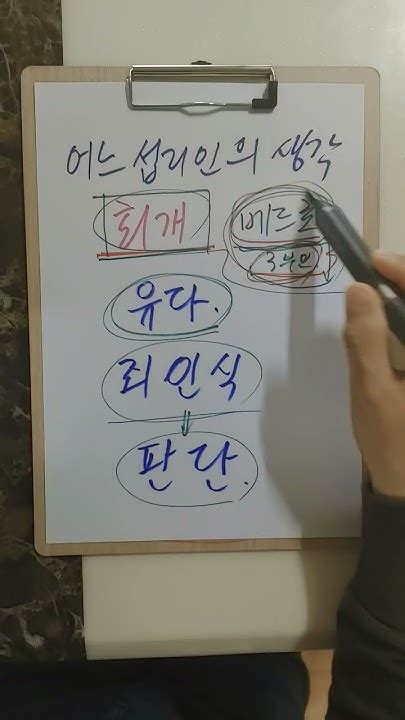 어느 섭리인의 생각
회개 베드로
3부인
유다.
죄인식
판단.